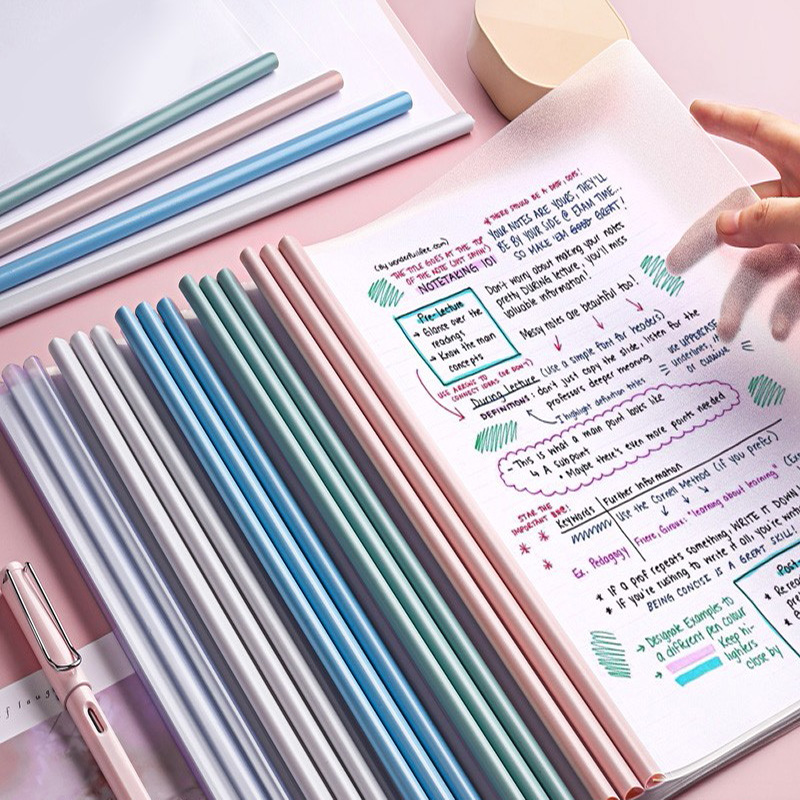 *THERE SHOULD BE A DATE, ALSO!
YOUR NOTES ARE YOURS, THEY'LL
BE BY YOUR SIDE @ EXAM TIME...
SO MAKE 'EM GOOD GREAT!
THE TITLE GOES AT THE TOP
OF THE NOTE (JUST SAYIN')
NOTETAKING 101
Don't worry about making your notes
pretty DURING lecture, you'll miss
valuable information!
Messy notes are beautiful too!
Pre-Lecture
→ Glance over the
readings
→ Know the main
concepts
USE ARROWS TO
CONNECT IDEAS (OR DON'T)
During Lecture (Use a simple font for headers)
DEFINITIONS: don't just copy the slide, listen for the
professors deeper meaning
highlight definition titles
USE UPPERCASE,
underlines, it
OR CHANGE
- This is what a main point looks like
↳ A subpoint
• Maybe there's even more points needed
STAR THE
IMPORTANT
Keywords
Further Information
Use the Cornell Method (if you prefer)
Ex. Pedagogy
Friere, Giroux: "learning about learning"
* If a prof repeats something, WRITE IT DOWN
* If you're rushing to write it all, you're
BEING CONCISE IS A GREAT SKILL!
→ Designate Examples to
a different pen colour
→ Keep hi-
lighters
close by